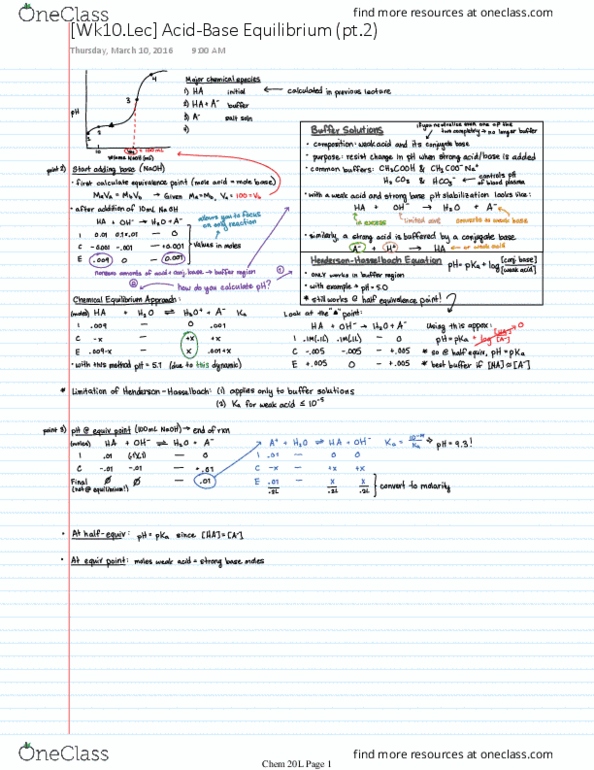 OneClass
find more resources at oneclass.com
[Wk10.Lec] Acid-Base Equilibrium (pt.2)
Thursday, March 10, 2016 9:00 AM
Major chemical species
1) HA initial ← calculated in previous lecture
2) HA + A⁻ buffer
3) A⁻ salt soln
4)
pH
3
4
10
Volume NaOH (ml)
point 2) Start adding base (NaOH)
• first calculate equivalence point (mole acid = mole base)
MaVa = MbVb → Given Ma=Mb, Va = 100 = Vb
• after addition of 10mL NaOH
allows you to focus on only reaction
HA + OH⁻ → H₂O + A⁻
I 0.01 0.1×.01 — 0
C -0.001 -.001 — +0.001
E .009 0 — 0.001
values in moles
nonzero amounts of acid + conj. base → buffer region
how do you calculate pH?
Buffer Solutions
if you neutralize even one of the two completely → no longer buffer
• composition: weak acid and its conjugate base
• purpose: resist change in pH when strong acid/base is added
• common buffers: CH₃COOH & CH₃COO⁻Na⁺
H₂CO₃ & HCO₃⁻ ← controls pH of blood plasma
• with a weak acid and strong base pH stabilization looks like:
HA + OH⁻ → H₂O + A⁻
in excess limited amt converts to weak base
• similarly, a strong acid is buffered by a conjugate base
A⁻ + H⁺ → HA ← or weak acid
Henderson-Hasselbach Equation pH = pKa + log [conj base]/[weak acid]
• only works in buffer region
• with example → pH = 5.0
* still works @ half equivalence point!
Chemical Equilibrium Approach:
(moles) HA + H₂O ⇌ H₃O⁺ + A⁻
I .009 — 0 .001
C -x — +x +x
E .009-x — x .001+x
• with this method pH = 5.1 (due to this dynamic)
Look at the "A" point:
HA + OH⁻ → H₂O + A⁻
I .1M(.1L) .1M(.1L) — 0
C -.005 -.005 — +.005
E +.005 0 — +.005
Using this approx:
pH = pKa + log [HA]/[A⁻] 0
* so @ half equiv, pH = pKa
* best buffer if [HA] ≈ [A⁻]
* Limitation of Henderson-Hasselbach: (1) applies only to buffer solutions
(2) Ka for weak acid ≤ 10⁻³
point 3) pH @ equiv point (100mL NaOH) → end of rxn
(moles) HA + OH⁻ ⇌ H₂O + A⁻
I .01 (.1)(.1) — 0
C -.01 -.01 — +.01
Final ∅ ∅ — .01
(not @ equilibrium!)
A⁻ + H₂O ⇌ HA + OH⁻
I .01 — 0 0
C -x — +x +x
E .01/.2L — x/.2L x/.2L
convert to molarity
pH = 9.3!
• At half-equiv: pH = pKa since [HA] = [A⁻]
• At equiv point: moles weak acid = strong base moles
OneClass
Chem 20L Page 1
find more resources at oneclass.com